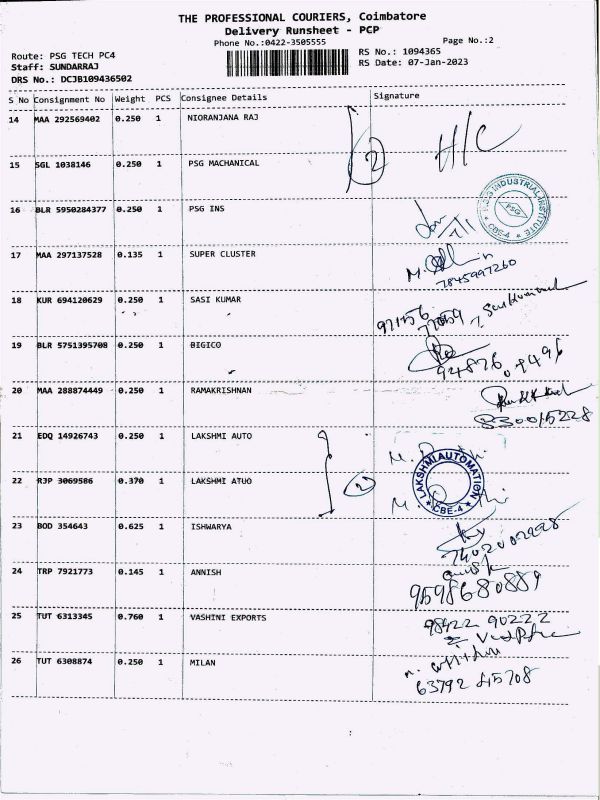 THE PROFESSIONAL COURIERS, Coimbatore
Delivery Runsheet - PCP
Phone No.:0422-3505555
Page No.:2
Route: PSG TECH PC4
RS No.: 1094365
Staff: SUNDARRAJ
RS Date: 07-Jan-2023
DRS No.: DCJB109436502
S No Consignment No Weight PCS Consignee Details Signature
14 MAA 292569402 0.250 1 NIORANJANA RAJ H/C
15 SGL 1038146 0.250 1 PSG MACHANICAL
2
16 BLR 5950284377 0.250 1 PSG INS
P.S.G INDUSTRIAL INSTITUTE
PSG
* CBE-4 *
17 MAA 297137528 0.135 1 SUPER CLUSTER
7845997260
18 KUR 694120629 0.250 1 SASI KUMAR
97156
77059
19 BLR 5751395708 0.250 1 BIGICO
94876 09496
20 MAA 288874449 0.250 1 RAMAKRISHNAN
21 EDQ 14926743 0.250 1 LAKSHMI AUTO
22 RJP 3069586 0.370 1 LAKSHMI ATUO
2
LAKSHMI AUTOMATION
* CBE-4 *
23 BOD 354643 0.625 1 ISHWARYA
24 TRP 7921773 0.145 1 ANNISH
25 TUT 6313345 0.760 1 VASHINI EXPORTS
98422 90222
26 TUT 6308874 0.250 1 MILAN
63792 45708